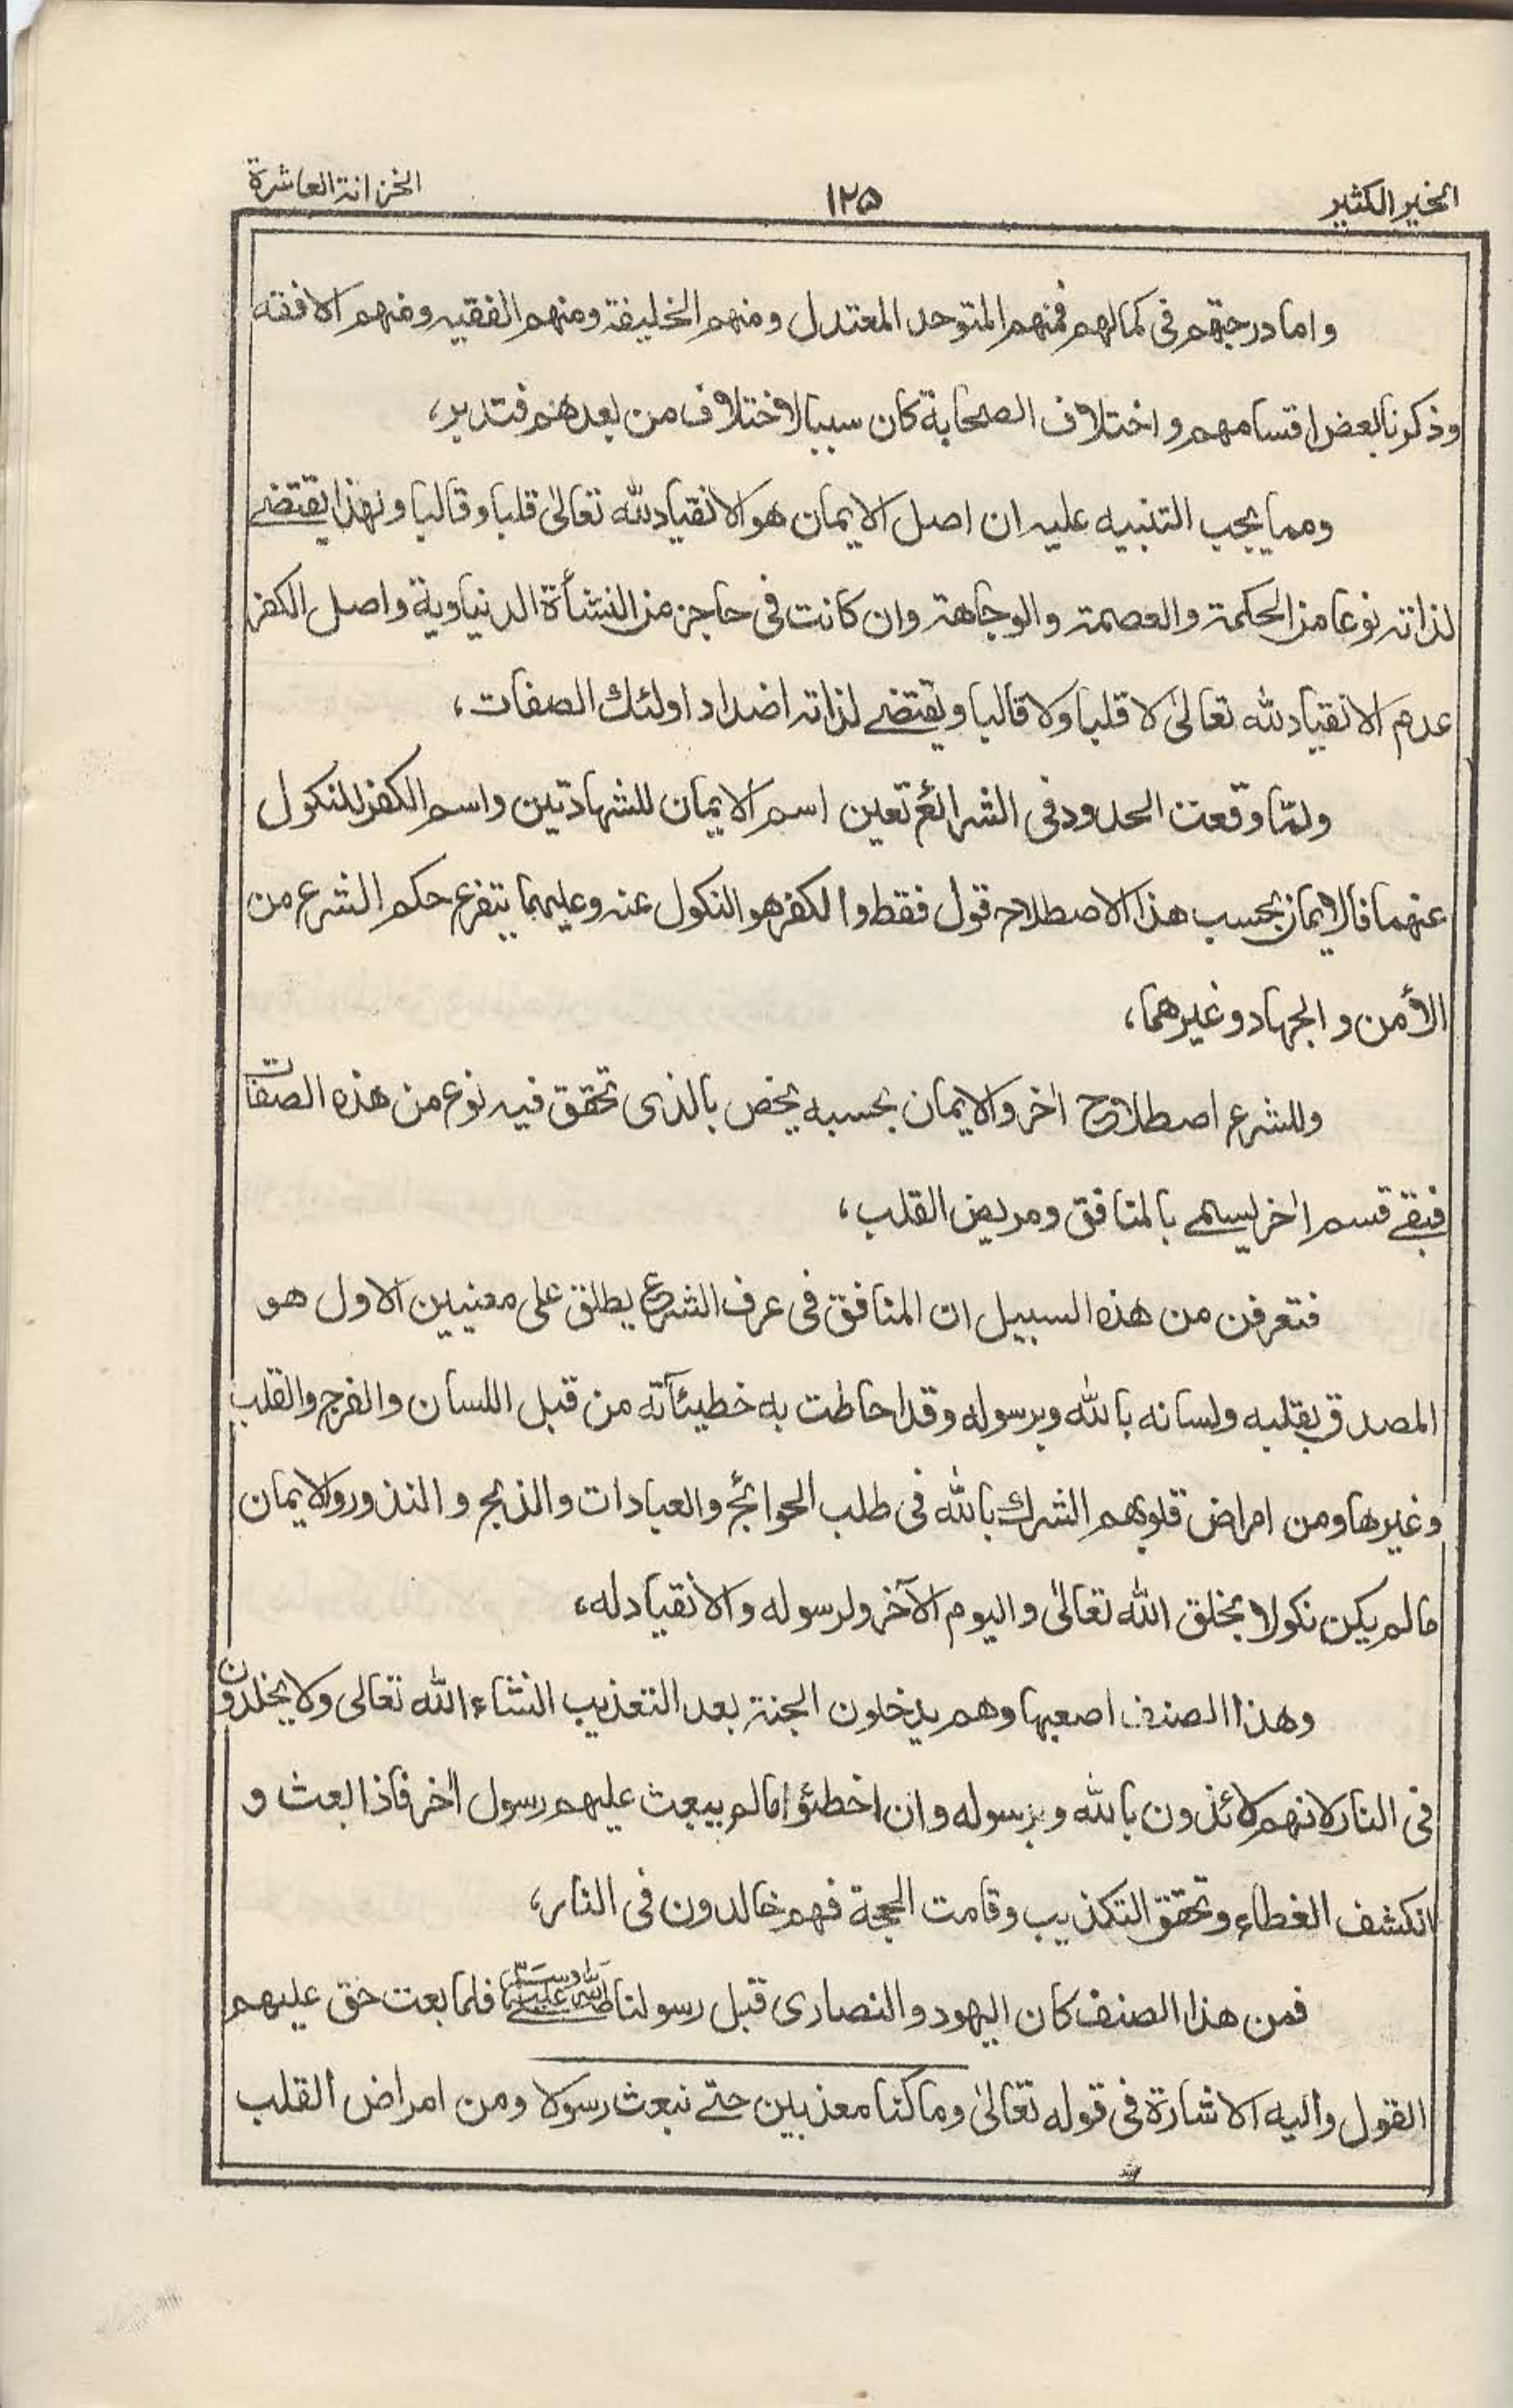 الخير الكثير ١٢٥ الخزانة العاشرة
واما درجتهم فى كمالهم فمنهم المتوحد المعتدل ومنهم الخليفة ومنهم الفقيه ومنهم الافقه
وذكرنا بعض اقسامهم واختلاف الصحابة كان سببا لاختلاف من بعدهم فتدبر،
ومما يجب التنبيه عليه ان اصل الايمان هو الانقياد لله تعالىٰ قلبا وقالبا وهذا يقتضے
لذاته نوعا من الحكمة والعصمة والوجاهة وان كانت فى حاجز من النشأة الدنياوية واصل الكفر
عدم الانقياد لله تعالىٰ لا قلبا ولا قالبا ويقتضے لذاته اضداد اولئك الصفات،
ولمّا وقعت الحدود فى الشرائع تعين اسم الايمان للشهادتين واسم الكفر للنكول
عنهما فالايمان بحسب هذا الاصطلاح قول فقط والكفر هو النكول عنه وعليهما يتفرع حكم الشرع من
الأمن والجهاد وغيرهما،
وللشرع اصطلاح اٰخر والايمان بحسبه يخص بالذى تحقق فيه نوع من هذه الصفات
فبقے قسم اٰخر يسمے بالمنافق ومريض القلب،
فتعرفن من هذه السبيل ان المنافق فى عرف الشرع يطلق على معنيين الاول هو
المصدق بقلبه ولسانه بالله وبرسوله وقد احاطت به خطيئآته من قبل اللسان والفرج والقلب
وغيرها ومن امراض قلوبهم الشرك بالله فى طلب الحوائج والعبادات والذبح والنذور والايمان
مالم يكن نكولا بخلق الله تعالىٰ واليوم الآخر ولرسوله والانقياد له،
وهذا الصنف اصعبها وهم يدخلون الجنة بعد التعذيب انشاء الله تعالى ولا يخلدون
فى النار لانهم لائذون بالله وبرسوله وان اخطئوا مالم يبعث عليهم رسول اٰخر فاذا بعث و
انكشف الغطاء وتحقق التكذيب وقامت الحجة فهم خالدون فى النار،
فمن هذا الصنف كان اليهود والنصارى قبل رسولنا صلى الله عليه وسلم فلما بعث حق عليهم
القول واليه الاشارة فى قوله تعالىٰ وما كنا معذبين حتے نبعث رسولا ومن امراض القلب